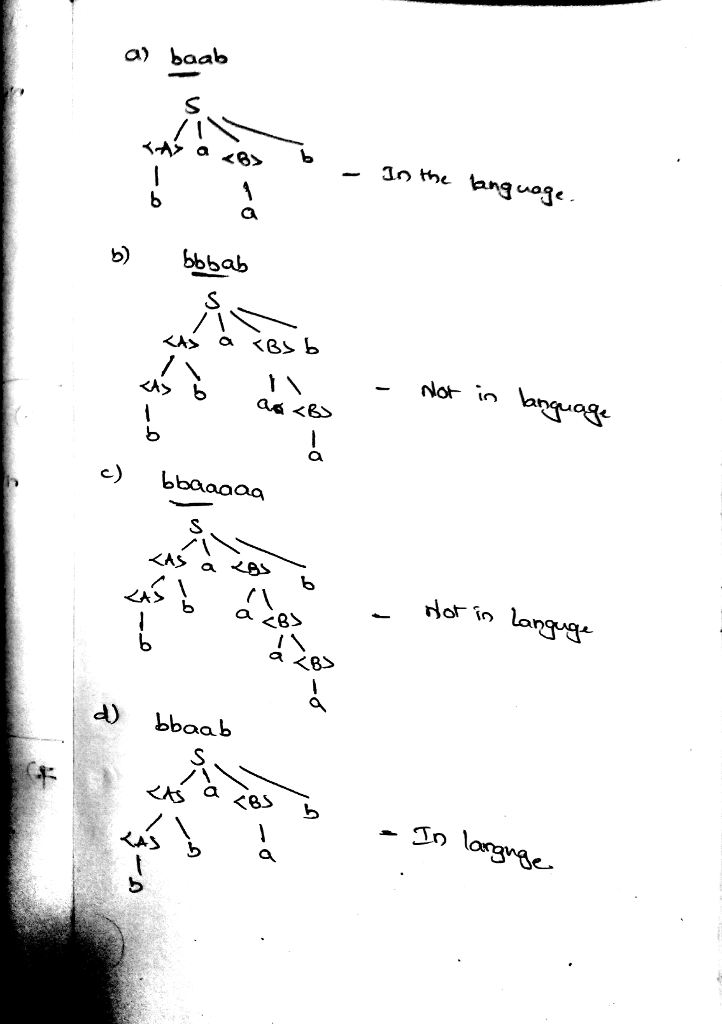 a) baab
S
<A> a <B> b
b a
- In the language.
b) bbbab
S
<A> a <B> b
<A> b a <B>
b a
- Not in language
c) bbaaaaa
S
<A> a <B> b
<A> b a <B>
b a <B>
a
- Not in languge
d) bbaab
S
<A> a <B> b
<A> b a
b
- In langnge